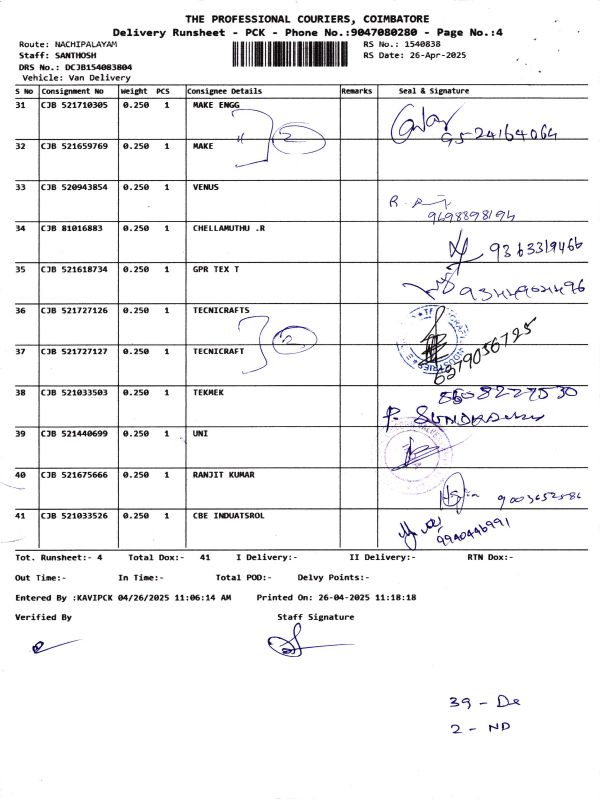 THE PROFESSIONAL COURIERS, COIMBATORE
Delivery Runsheet - PCK - Phone No.:9047080280 - Page No.:4
Route: NACHIPALAYAM RS No.: 1540838
Staff: SANTHOSH RS Date: 26-Apr-2025
DRS No.: DCJB154083804
Vehicle: Van Delivery
S No Consignment No Weight PCS Consignee Details Remarks Seal & Signature
31 CJB 521710305 0.250 1 MAKE ENGG
2 95-24164064
32 CJB 521659769 0.250 1 MAKE
33 CJB 520943854 0.250 1 VENUS
9698898194
34 CJB 81016883 0.250 1 CHELLAMUTHU .R
9363319466
35 CJB 521618734 0.250 1 GPR TEX T
9344904496
36 CJB 521727126 0.250 1 TECNICRAFTS
2 6379056725
37 CJB 521727127 0.250 1 TECNICRAFT
38 CJB 521033503 0.250 1 TEKMEK
39 CJB 521440699 0.250 1 UNI
40 CJB 521675666 0.250 1 RANJIT KUMAR
9003652586
41 CJB 521033526 0.250 1 CBE INDUATSROL
9940446991
Tot. Runsheet:- 4 Total Dox:- 41 I Delivery:- II Delivery:- RTN Dox:-
Out Time:- In Time:- Total POD:- Delvy Points:-
Entered By :KAVIPCK 04/26/2025 11:06:14 AM Printed On: 26-04-2025 11:18:18
Verified By Staff Signature
39 - De
2 - ND